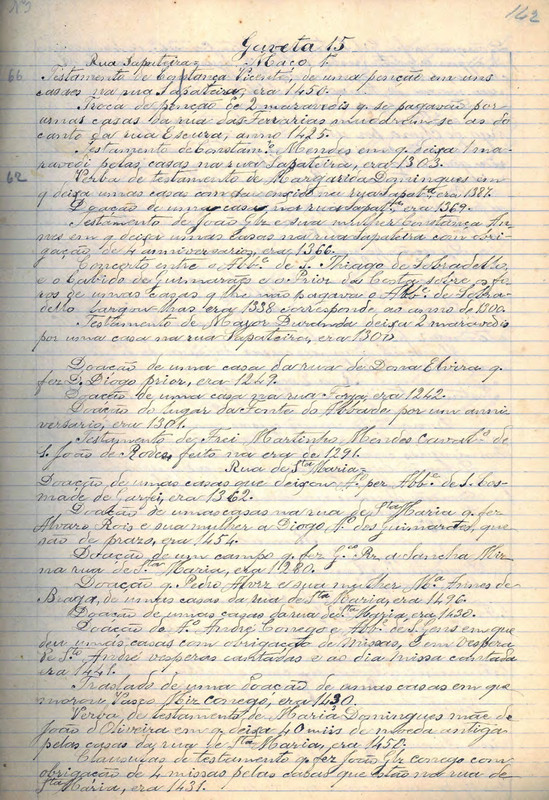 142
Gaveta 15
Rua Sapateira Maço 1º
66
Testamento de Constança Vicente, de uma porção em uns
casaes na rua Sapateira, era 1450.
Troca da porção de 2 maravedis q. se pagavão por
umas casas da rua das Ferrarias mudarem-se as do
canto da rua Escura, anno 1425.
Testamento de Mendes em q. deixa 1 ma-
ravedi pelas casas na rua Sapateira, era 1303.
62
Verba de testamento de Margarida Domingues em
q. deixa umas casas com na rua Sapatª, era 1387.
Doação de uma casa na rua Sapatª, era 1369.
Testamento de João Glz e sua mulher Constança An-
nes em q. deixa umas casas na rua Sapateira com obri-
gação de 4 anniversarios, era 1366.
Concerto entre o Abbe. de S. Thiago de Sobradello
e o Cabido de Guimarães e o Prior da Costa, sobre os fo-
ros de umas casas q. lhe não pagava o Abbe. de Sobra-
dello largou-lhas era 1338 corresponde ao anno de 1300.
Testamento de Mayor Duranda deixa 2 maravedis
por uma casa na rua Sapateira, era 1300
Doação de uma casa da rua de Dona Elvira q.
fez D. Diogo prior, era 1249.
Doação de uma casa na rua Forja, era 1242.
Doação do lugar da Fonte do Abbade por um anni-
versario, era 1301.
Testamento de Frei Martinho Mendes de
S. João de Rodes, feito na era de 1291.
Rua de Sta Maria
Doação de umas casas que deixou Aº per Abbe. de S. Cos-
made de Garfe, era 1362.
Doação de umas casas na rua de Sta Maria q. fez
Alvaro Rois e sua mulher a Diogo dos Guimarães, que
são de prazo, era 1454.
Doação de um campo q. fez Gil Pz. a Sancha Miz
na rua de Sta Maria, era 1280.
Doação q. Pedro Alvrz e sua mulher Mª Annes de
Braga, de umas casas da rua de Sta Maria, era 1496.
Doação de umas casas na rua de Sta Maria, era 1430.
Doação de Aº André Conego e Abbe. de S. Gens em que
deu umas casas com obrigação de missas, 1 em vespera
de Sto André vesperas cantadas e ao dia missa cantada
era 1441.
Traslado de uma doação de umas casas em que
morou Vasco Miz conego, era 1430.
Verba de testamento de Maria Domingues mãe de
João d'Oliveira em q. deixa 40 miis de moeda antiga
pelas casas da rua de Sta Maria, era 1450.
Clausulas de testamento q. fez João Glz conego com
obrigação de 4 missas pelas casas que estão na rua de
Sta Maria, era 1431.